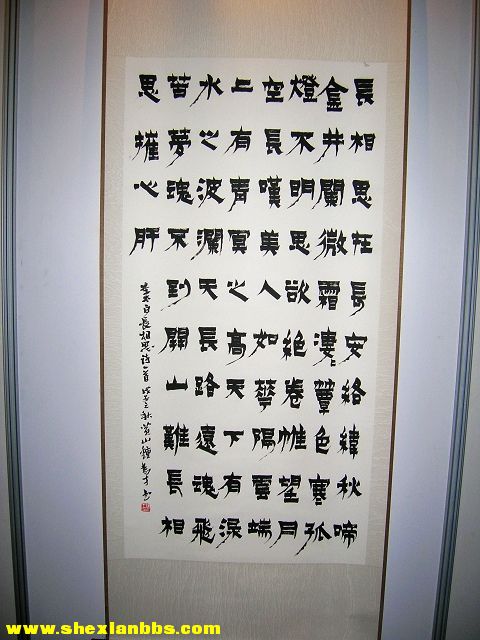 長相思在長安絡緯秋啼
金井闌微霜淒簟色寒孤
燈不明思欲絕卷帷望月
空長嘆美人如華隔雲端
上有青冥之高天下有淥
水之波瀾天長路遠魂飛
苦夢魂不到關山難長相
思摧心肝
李太白長相思詩一首 秋黃山 書
www.shexianbbs.com